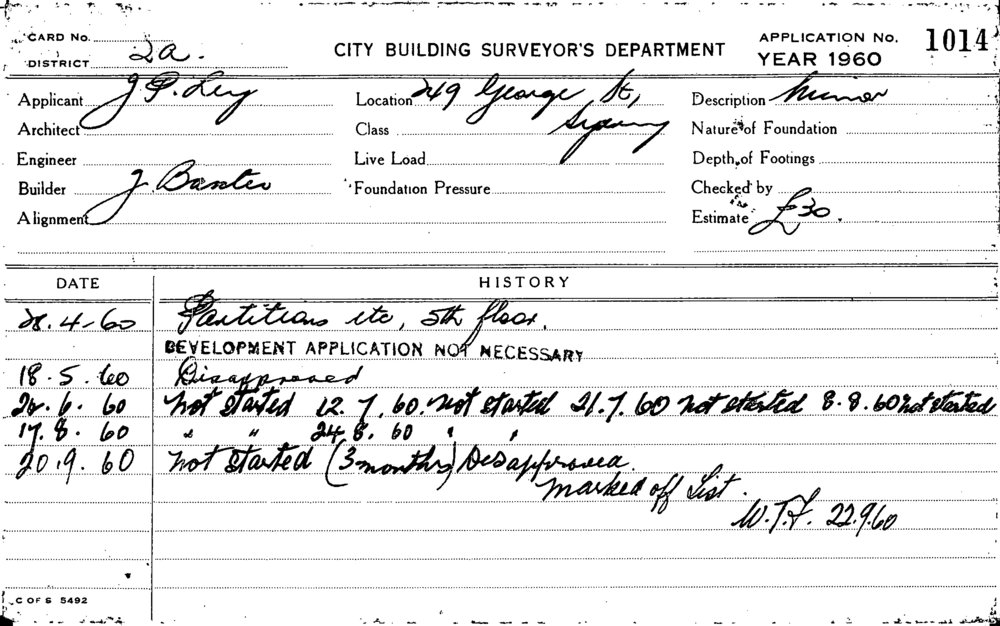 CARD No.
DISTRICT 2a.
CITY BUILDING SURVEYOR'S DEPARTMENT
APPLICATION No. 1014
YEAR 1960
Applicant J. P. Levy
Location 249 George St, Sydney
Description Minor
Architect
Class
Nature of Foundation
Engineer
Live Load
Depth of Footings
Builder J. Baxter
Foundation Pressure
Checked by
Alignment
Estimate £30.
DATE HISTORY
28.4-60 Partitions etc, 5th floor.
DEVELOPMENT APPLICATION NOT NECESSARY
18.5.60 Disapproved
6.60 not started 12.7.60. not started 21.7.60 not started 8.8.60 not started
17.8.60 " " 24.8.60 " "
20.9.60 not started (3 months) Disapproved.
marked off List.
W.T.F. 22.9.60
C OF S 5492